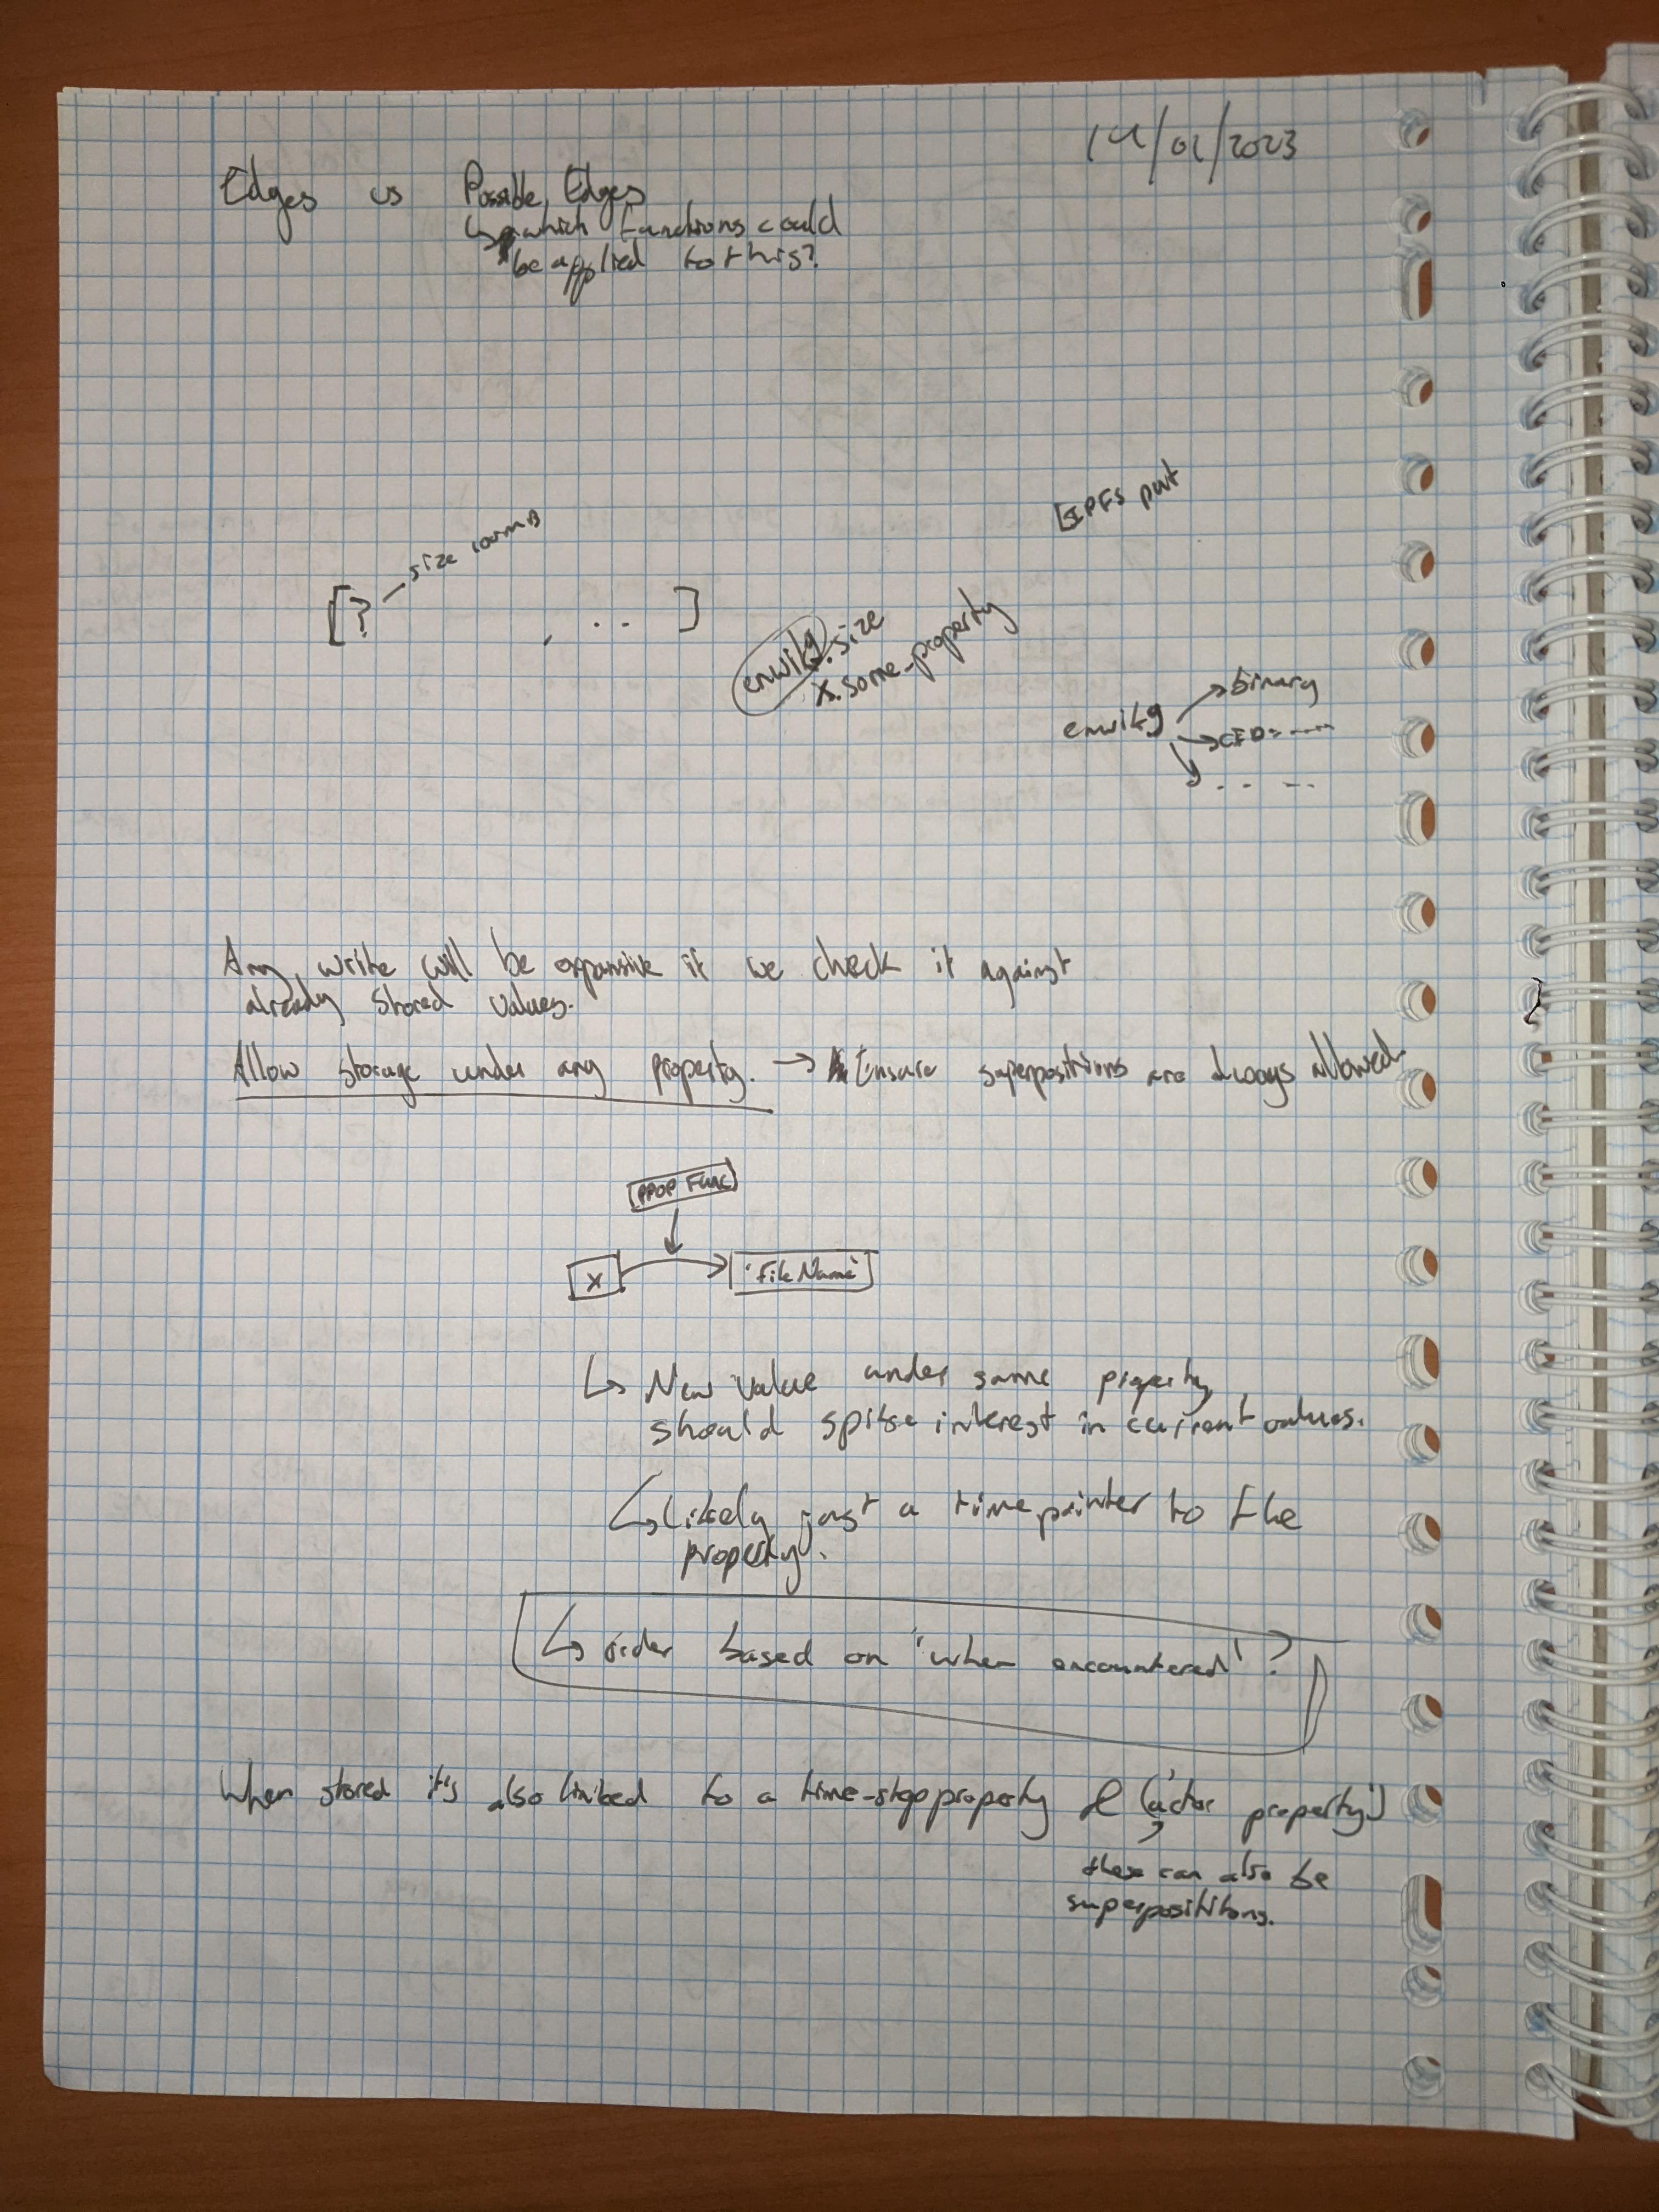 14/01/2023
Edges vs Possible Edges
↳ which functions could
be applied to this?
[IPFS put
size
[? , .. ]
enwik9.size
x.some_property
enwik9 → binary
→ CID= ----
↘ . . - -
Any write will be expansive if we check it against
already stored values.
Allow storage under any property. → Ensure superpositions are always allowed.
[PROP FUNC]
X
'FileName'
↳ New value under same property
should spike interest in current values.
↳ Likely just a time pointer to the
property.
↳ order based on 'when encountered'?
When stored it's also linked to a time-step property & ('actor property')
these can also be
superpositions.